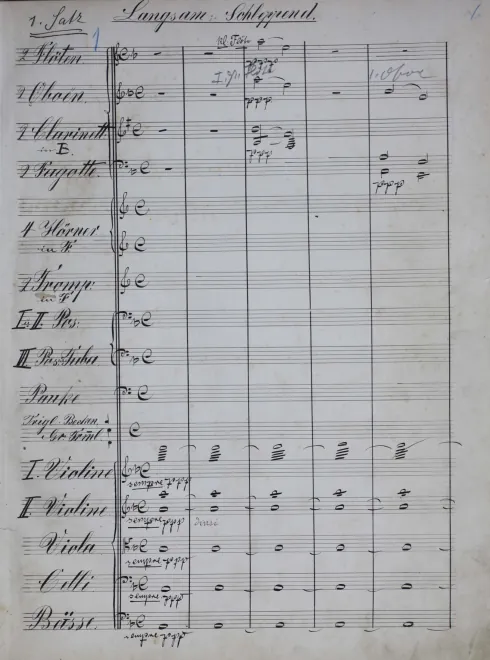 1. Satz Langsam. Schleppend.
1
2 Flöten.
2 Oboen.
ppp
1. Oboe
2 Clarinett
in B.
ppp
2 Fagotte.
ppp
4 Hörner
in F
2 Tromp.
in F
I. II. Pos.
III Pos. Tuba
Pauke
Trigl. Becken.
Gr. Troml.
I. Violine
sempre ppp
II. Violine
sempre ppp divisi
Viola
sempre ppp
Celli
sempre ppp
Bässe.
sempre ppp